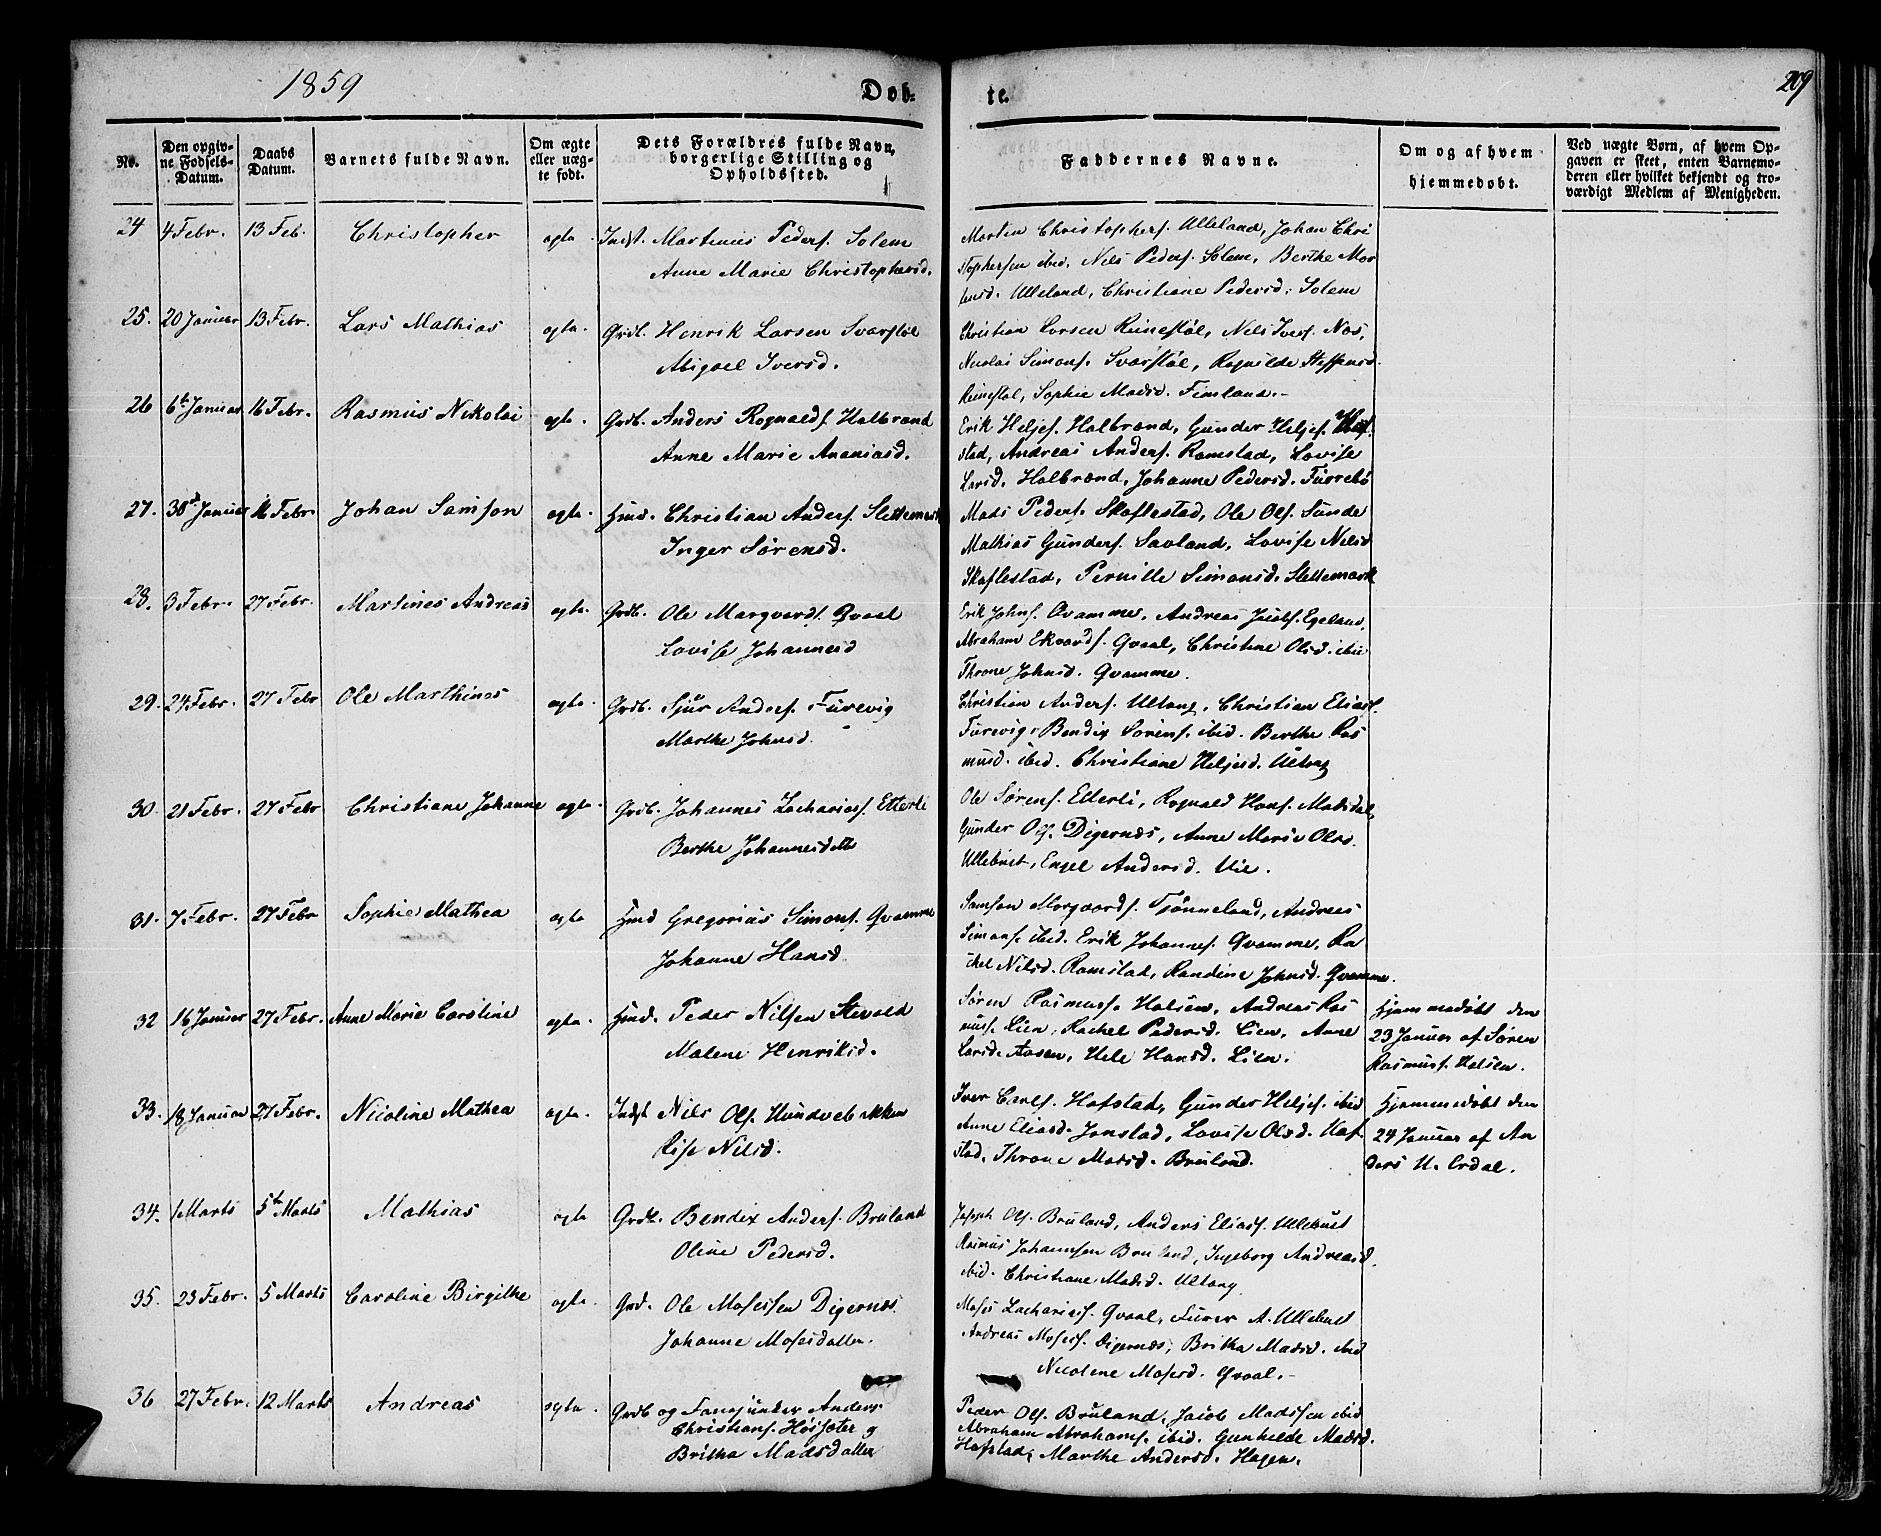 1859
Døb-
te.
209
No.
Den opgiv-
ne Fødsels-
Datum.
Daabs
Datum.
Barnets fulde Navn.
Om ægte
eller uæg-
te født.
Dets Forældres fulde Navn,
borgerlige Stilling og
Opholdssted.
Faddernes Navne.
Om og af hvem
hjemmedøbt.
Ved uægte Børn, af hvem Op-
gaven er skeet, enten Barnemo-
deren eller hvilket bekjendt og tro-
værdigt Medlem af Menigheden.
24 4 Febr. 13 Feb. Christopher ægte Indst. Martinus Peders. Solem
Anne Marie Christophersd.
Morten Christophers. Ulleland, Johan Chri
stophersen ibid. Nils Peders. Solem, Berthe Mor
tensd. Ulleland, Christiane Pedersd. Solem
25. 20 Januar 13 Febr. Lars Mathias ægte Grdb. Henrik Larsen Svarstøl
Abigael Iversd.
Christian Larsen Reinestøl, Nils Ivers. Næs,
Nicolai Simons. Svarstøl, Ragnilde Steffensd.
Reinestøl, Sophie Madsd. Fimland.
26 6te Januar 16 Febr. Rasmus Nikolai ægte Grdb. Anders Rognalds. Halbrænd
Anne Marie Ananiasd.
Erik Heljes. Halbrænd, Gunder Heljes. Haf
stad, Andreas Anders. Ramstad, Lovise
Larsd. Halbrænd, Johanne Pedersd. Furrebø
27. 30d Januar 16 Febr. Johan Samson ægte Hmd. Christian Anders. Slettemark
Inger Sørensd.
Mads Peders. Skaflestad, Ole Ols. Sunde
Mathias Gunders. Savland, Lovise Nilsd
Skaflestad, Pernille Simonsd. Slettemark
28. 3 Febr. 27 Febr. Martines Andreas ægte Grdb. Ole Margvards. Qvaal
Lovise Johannesd
Erik Johns. Qvamme, Andreas Jacobs. Egeland,
Abraham Ekvards. Qvaal, Christine Olsd. ibid
Throne Johnsd. Qvamme.
29. 24 Febr. 27 Febr Ole Marthinos ægte Grdb. Sjur Anders. Furevig
Marthe Johnsd.
Christian Anders. Ultang, Christian Eliass.
Furevig, Bendix Sørens. ibid. Berthe Ras
musd. ibid. Christiane Heljesd. Ultang
30. 21 Febr. 27 Febr Christiane Johanne ægte Grdb. Johannes Zachariass. Etterli
Berthe Johannesdatte
Ole Sørens. Etterli, Rognald Hans. Mælsdal,
Gunder Ols. Digernæs, Anne Marie Olsd.
Ullebust, Engel Andersd. Vie.
31. 7 Febr. 27 Febr Sophie Mathea ægte Hmd Gregorius Simons. Qvamme
Johanne Hansd.
Samson Margvards. Tjønneland, Andreas
Simons. ibid. Erik Johannes. Qvamme, Ra
chel Nilsd. Ramstad, Randine Johnsd. Qvamme.
32 16 Januar 27 Febr. Anne Marie Caroline ægte Hmd. Peder Nilsen Stevold
Malene Henriksd.
Søren Rasmuss. Halsen, Andreas Ras
muss. Lien, Rachel Pedersd. Lien, Anne
Larsd. Aasen, Hele Hansd. Lien.
Hjemmedøbt den
23 Januar af Søren
Rasmuss. Halsen.
33. 18 Januar 27 Febr. Nicoline Mathea ægte Indst Nils Ols. Hundvebakken
Rise Nilsd.
Iver Carls. Hafstad, Gunder Heljes. ibid
Anne Eliasd. Jonstad, Lovise Olsd. Haf
stad, Throne Madsd. Bruland.
Hjemmedøbt den
24 Januar af An
ders U. Erdal.
34. 1 Marts 5te Marts Mathias ægte Grdb. Bendix Anders. Bruland
Oline Pedersd.
Joseph Ols. Bruland, Anders Eliass. Ullebust
Rasmus Johannsen Bruland, Ingeborg Andreasd.
ibid. Christiane Madsd. Ultang
35. 23 Febr. 5 Marts Caroline Birgithe ægte Grd. Ole Mosessen Digernæs
Johanne Mosesdatter.
Moses Zachariass. Qvaal, Furer A. Ullebust
Andreas Moses. Digernæs, Britha Madsd. ibid
Nicolene Mosesd. Qvaal.
36 27 Febr. 12 Marts Andreas ægte Grdb og Fanejunker Anders
Christians. Høisæter og
Britha Madsdatter
Peder Ols. Bruland, Jacob Madssen ibid
Abraham Abrahams. ibid. Gunhilde Madsd.
Hafstad, Marthe Andersd. Hagen.